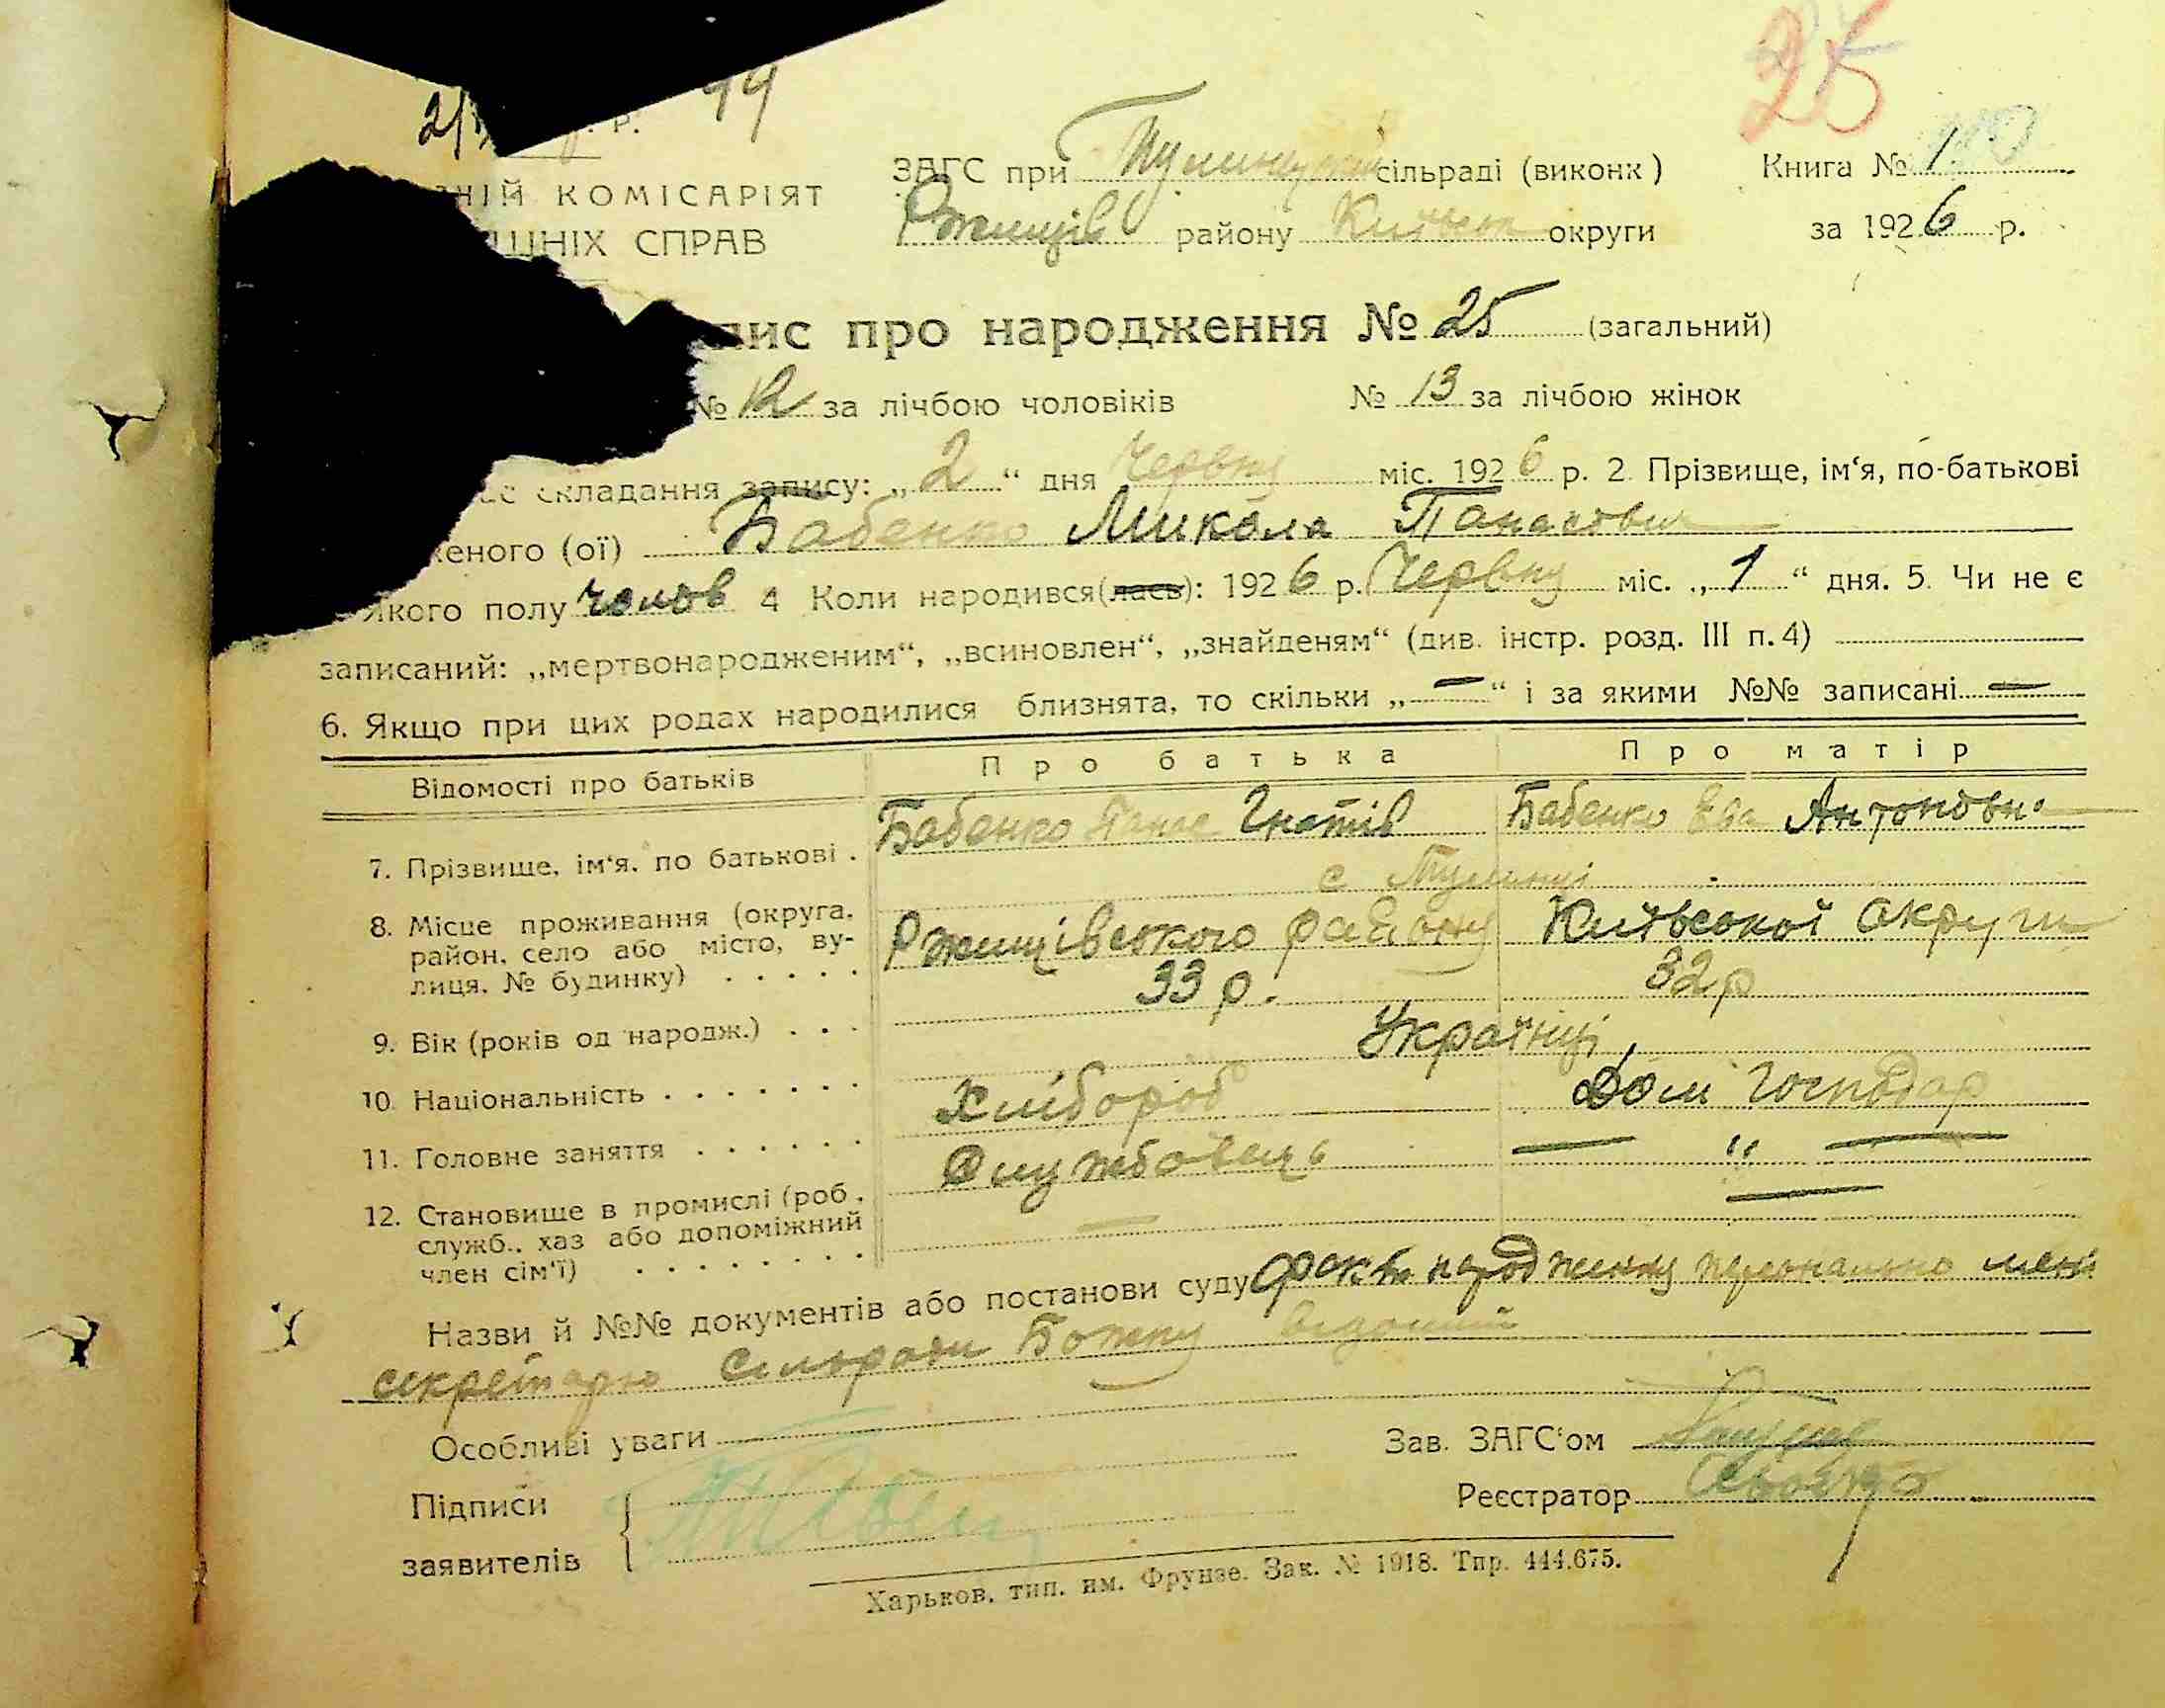 25
99
ЗАГС при Тулинцькій сільраді (виконк) Книга № 1
НІЙ КОМІСАРІЯТ
Ржищів району Київськ округи за 1926 р.
ШНІХ СПРАВ
пис про народження № 25 (загальний)
№ 12 за лічбою чоловіків № 13 за лічбою жінок
складання запису: „2“ дня Червня міс. 1926 р. 2. Прізвище, ім‘я, по-батькові
женого (ої) Бабенко Микола Панасович
Якого полу чолов 4 Коли народився(лась): 1926 р. Червня міс. „1“ дня. 5. Чи не є
записаний: „мертвонародженим“, „всиновлен“, „знайденям“ (див. інстр. розд. III п. 4)
6. Якщо при цих родах народилися близнята, то скільки „—“ і за якими №№ записані —
Відомості про батьків Про батька Про матір
7. Прізвище, ім‘я, по батькові . Бабенко Панас Гнатів Бабенко Ева Антоновн.
с Тулинці
8. Місце проживання (округа, Ржищівського району Київської округи
район, село або місто, ву-
лиця, № будинку) . . . . .
9. Вік (років од народж.) . . . 33 р. 32 р
10. Національність . . . . . . . Українці
11. Головне заняття . . . . . . Хлібороб Дом Господар
12. Становище в промислі (роб. Службовець — „ —
служб., хаз або допоміжний — —
член сім‘ї) . . . . . . . .
Назви й №№ документів або постанови суду Факт народження персонально мені
секретарю Сільради Божку відомий
Особливі уваги
Зав. ЗАГС‘ом
Підписи
Реєстратор
заявителів
Харьков, тип. им. Фрунзе. Зак. № 1918. Тир. 444.675.